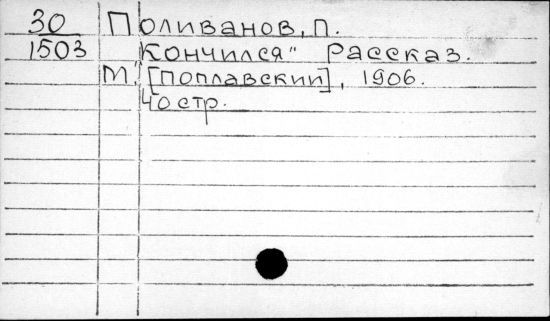 30 Поливанов, П.
1503 Кончился" Рассказ.
М. [Поплавский], 1906.
40 стр.